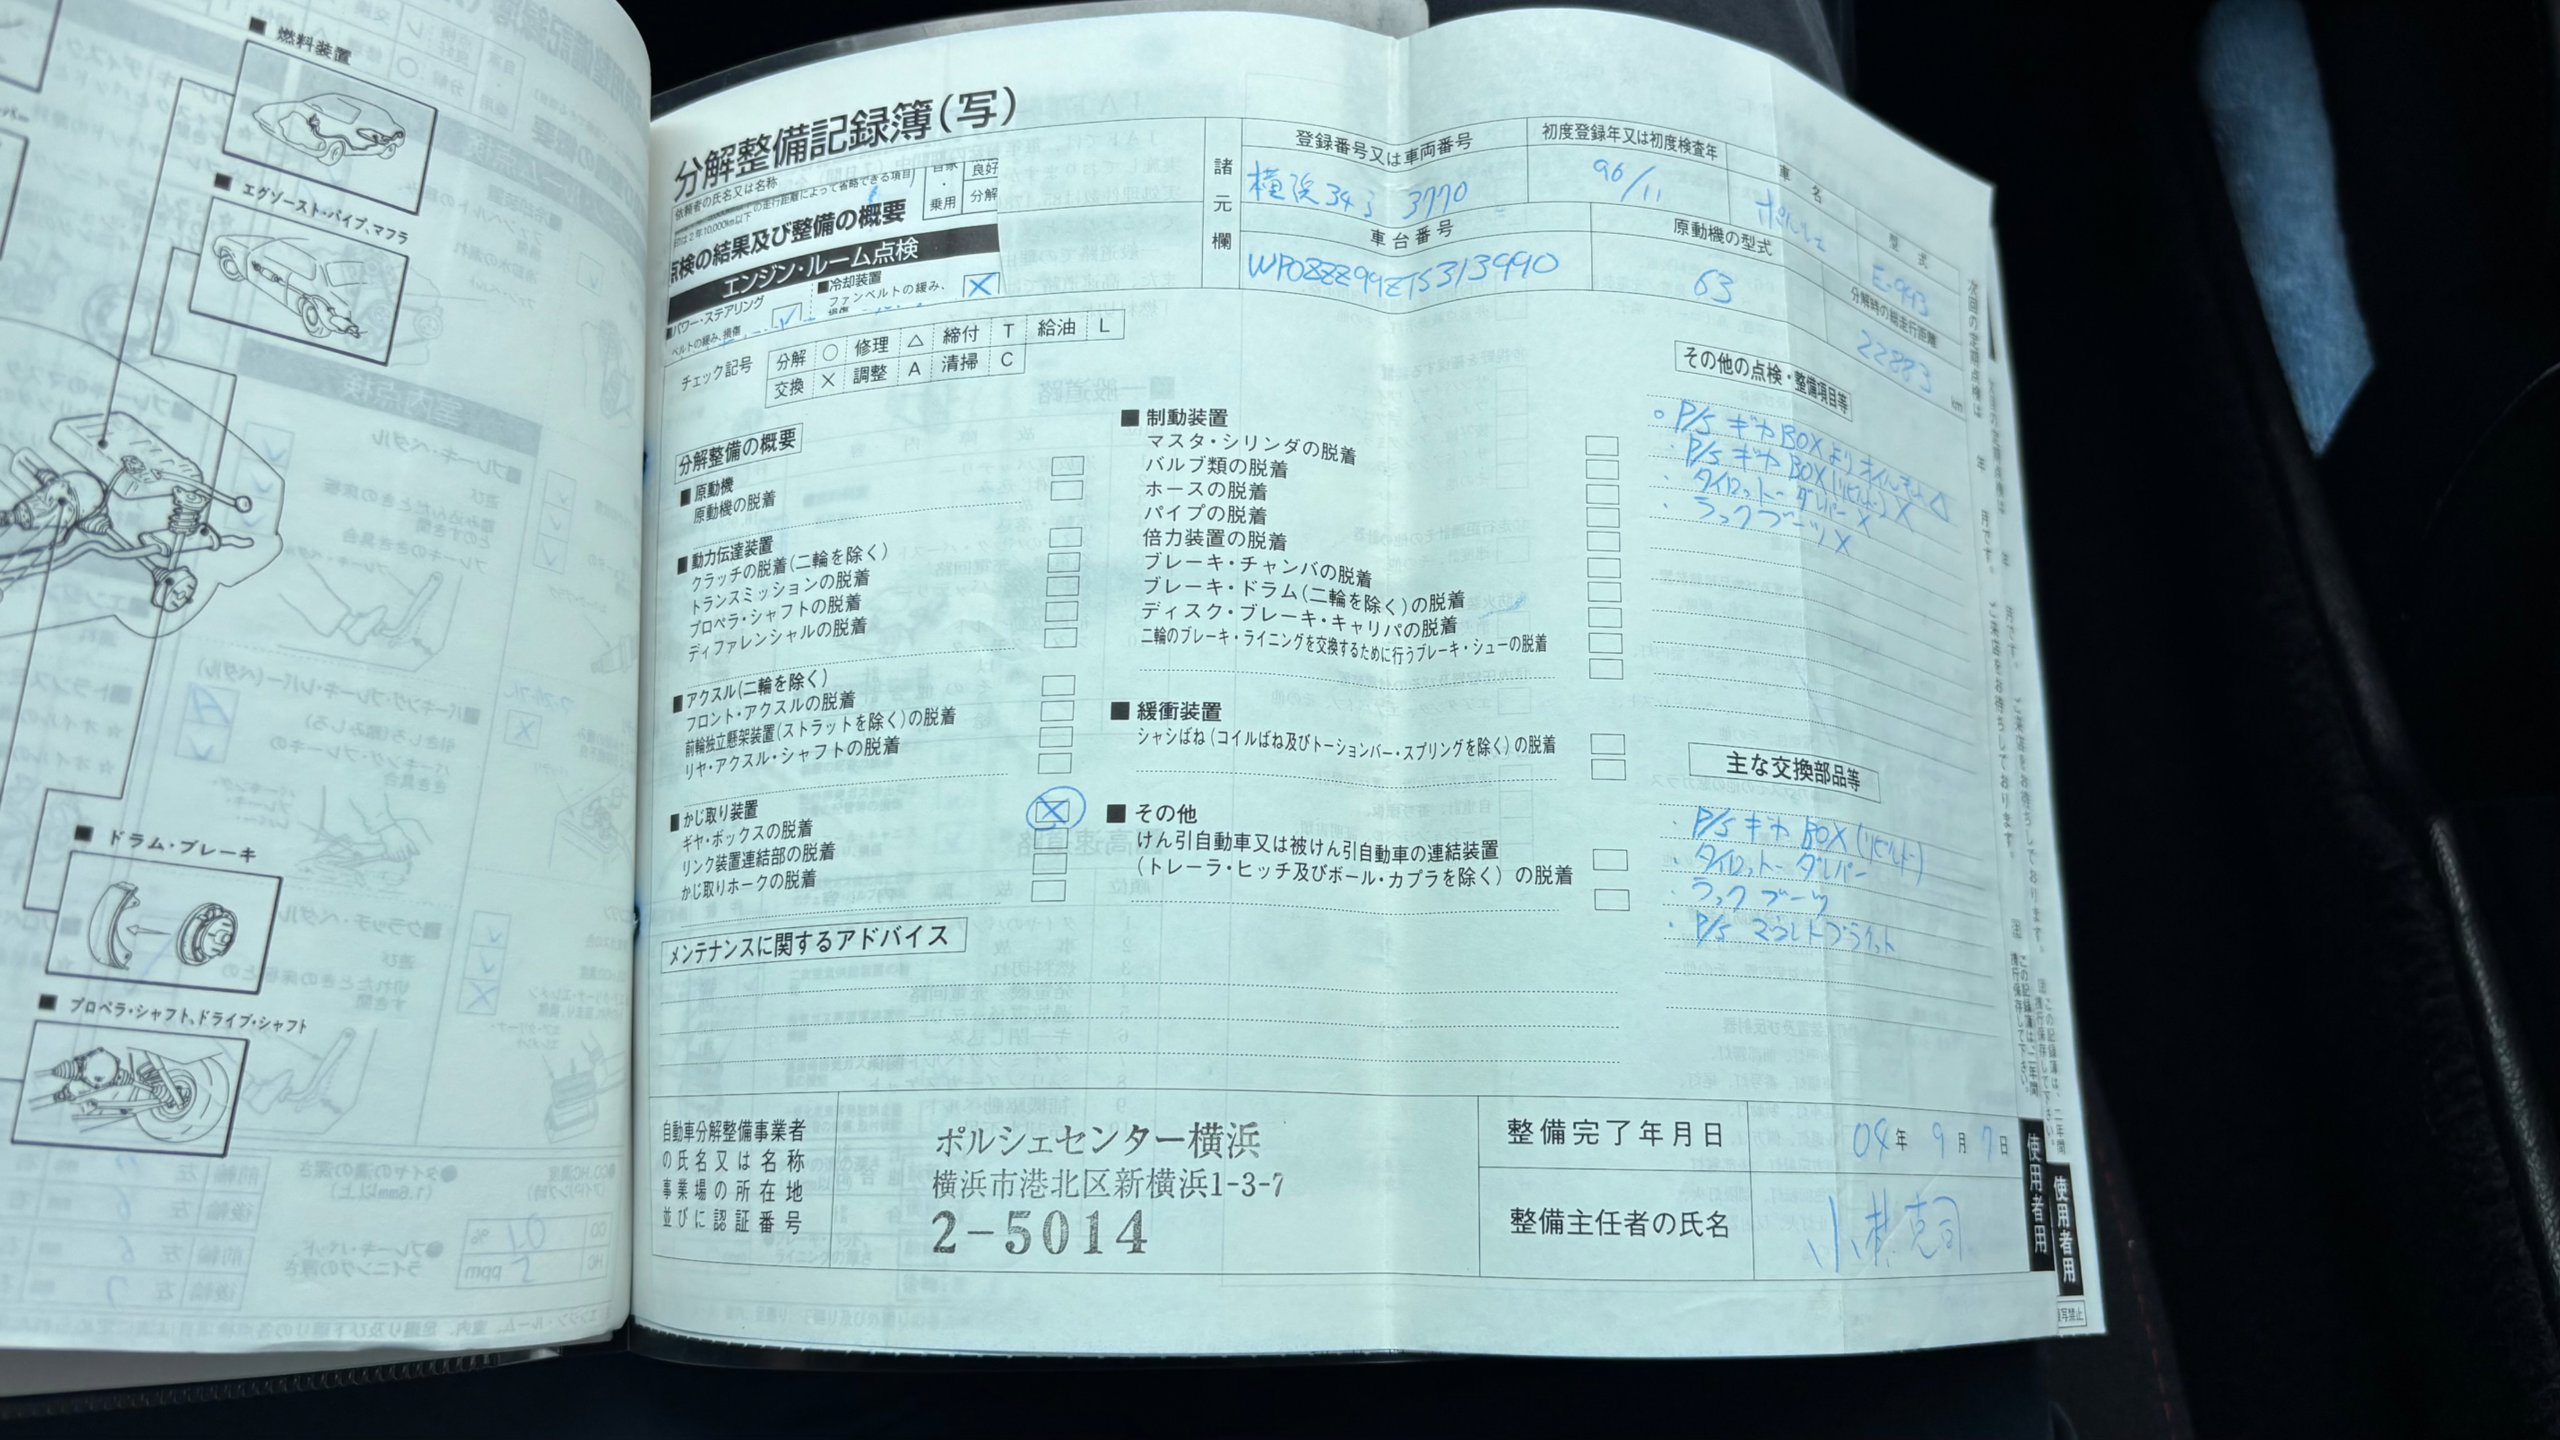 ■ 燃料装置
■ エグゾースト・パイプ、マフラ
■ ドラム・ブレーキ
■ プロペラ・シャフト、ドライブ・シャフト
分解整備記録簿(写)
依頼者の氏名又は名称
点検の結果及び整備の概要
乗用
良好
分解
エンジン・ルーム点検
■パワー・ステアリング
ベルトの緩み、損傷
■冷却装置
ファンベルトの緩み、
損傷
諸元欄
登録番号又は車両番号
横浜34 3770
初度登録年又は初度検査年
96/11
車名
ポルシェ
型式
E-993
車台番号
WP0ZZZ99ZTS313990
原動機の型式
63
分解時の総走行距離
22883 km
チェック記号
分解 ○ 修理 △ 締付 T 給油 L
交換 × 調整 A 清掃 C
分解整備の概要
■ 原動機
原動機の脱着
■ 動力伝達装置
クラッチの脱着(二輪を除く)
トランスミッションの脱着
プロペラ・シャフトの脱着
ディファレンシャルの脱着
■ アクスル(二輪を除く)
フロント・アクスルの脱着
前輪独立懸架装置(ストラットを除く)の脱着
リヤ・アクスル・シャフトの脱着
■ かじ取り装置
ギヤ・ボックスの脱着
リンク装置連結部の脱着
かじ取りホークの脱着
■ 制動装置
マスタ・シリンダの脱着
バルブ類の脱着
ホースの脱着
パイプの脱着
倍力装置の脱着
ブレーキ・チャンバの脱着
ブレーキ・ドラム(二輪を除く)の脱着
ディスク・ブレーキ・キャリパの脱着
二輪のブレーキ・ライニングを交換するために行うブレーキ・シューの脱着
■ 緩衝装置
シャシばね(コイルばね及びトーションバー・スプリングを除く)の脱着
■ その他
けん引自動車又は被けん引自動車の連結装置
(トレーラ・ヒッチ及びボール・カプラを除く)の脱着
その他の点検・整備項目等
○ P/S ギヤBOXよりオイルもれ △
・P/S ギヤBOX(リビルト) X
・タイロットーダンパー X
・ラックブーツ X
主な交換部品等
・P/S ギヤ BOX (リビルト)
・タイロットーダンパー
・ラックブーツ
・P/S マウントブラケット
メンテナンスに関するアドバイス
自動車分解整備事業者
の氏名又は名称
事業場の所在地
並びに認証番号
ポルシェセンター横浜
横浜市港北区新横浜1-3-7
2-5014
整備完了年月日
04年 9月 7日
整備主任者の氏名
小林克司
次回の定期点検は 年 月です。 ご来店をお待ちしております。
この記録簿は、二年間
携行保存して下さい。
使用者用
使用者用